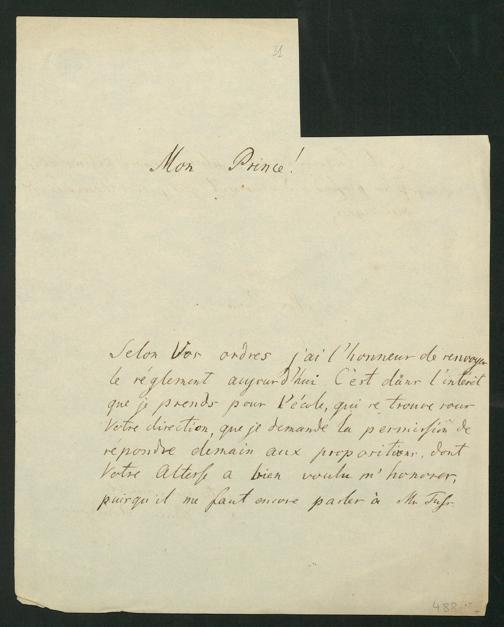 31
Mon Prince!
Selon Vos ordres j'ai l'honneur de renvoyer
le réglement aujourd'hui. C'est dans l'interêt
que je prends pour l'école, qui se trouve sous
Votre direction, que je demande la permission de
répondre demain aux propositions, dont
Votre Altesse a bien voulu m'honorer,
puisqu'il me faut encore parler à Mr
488